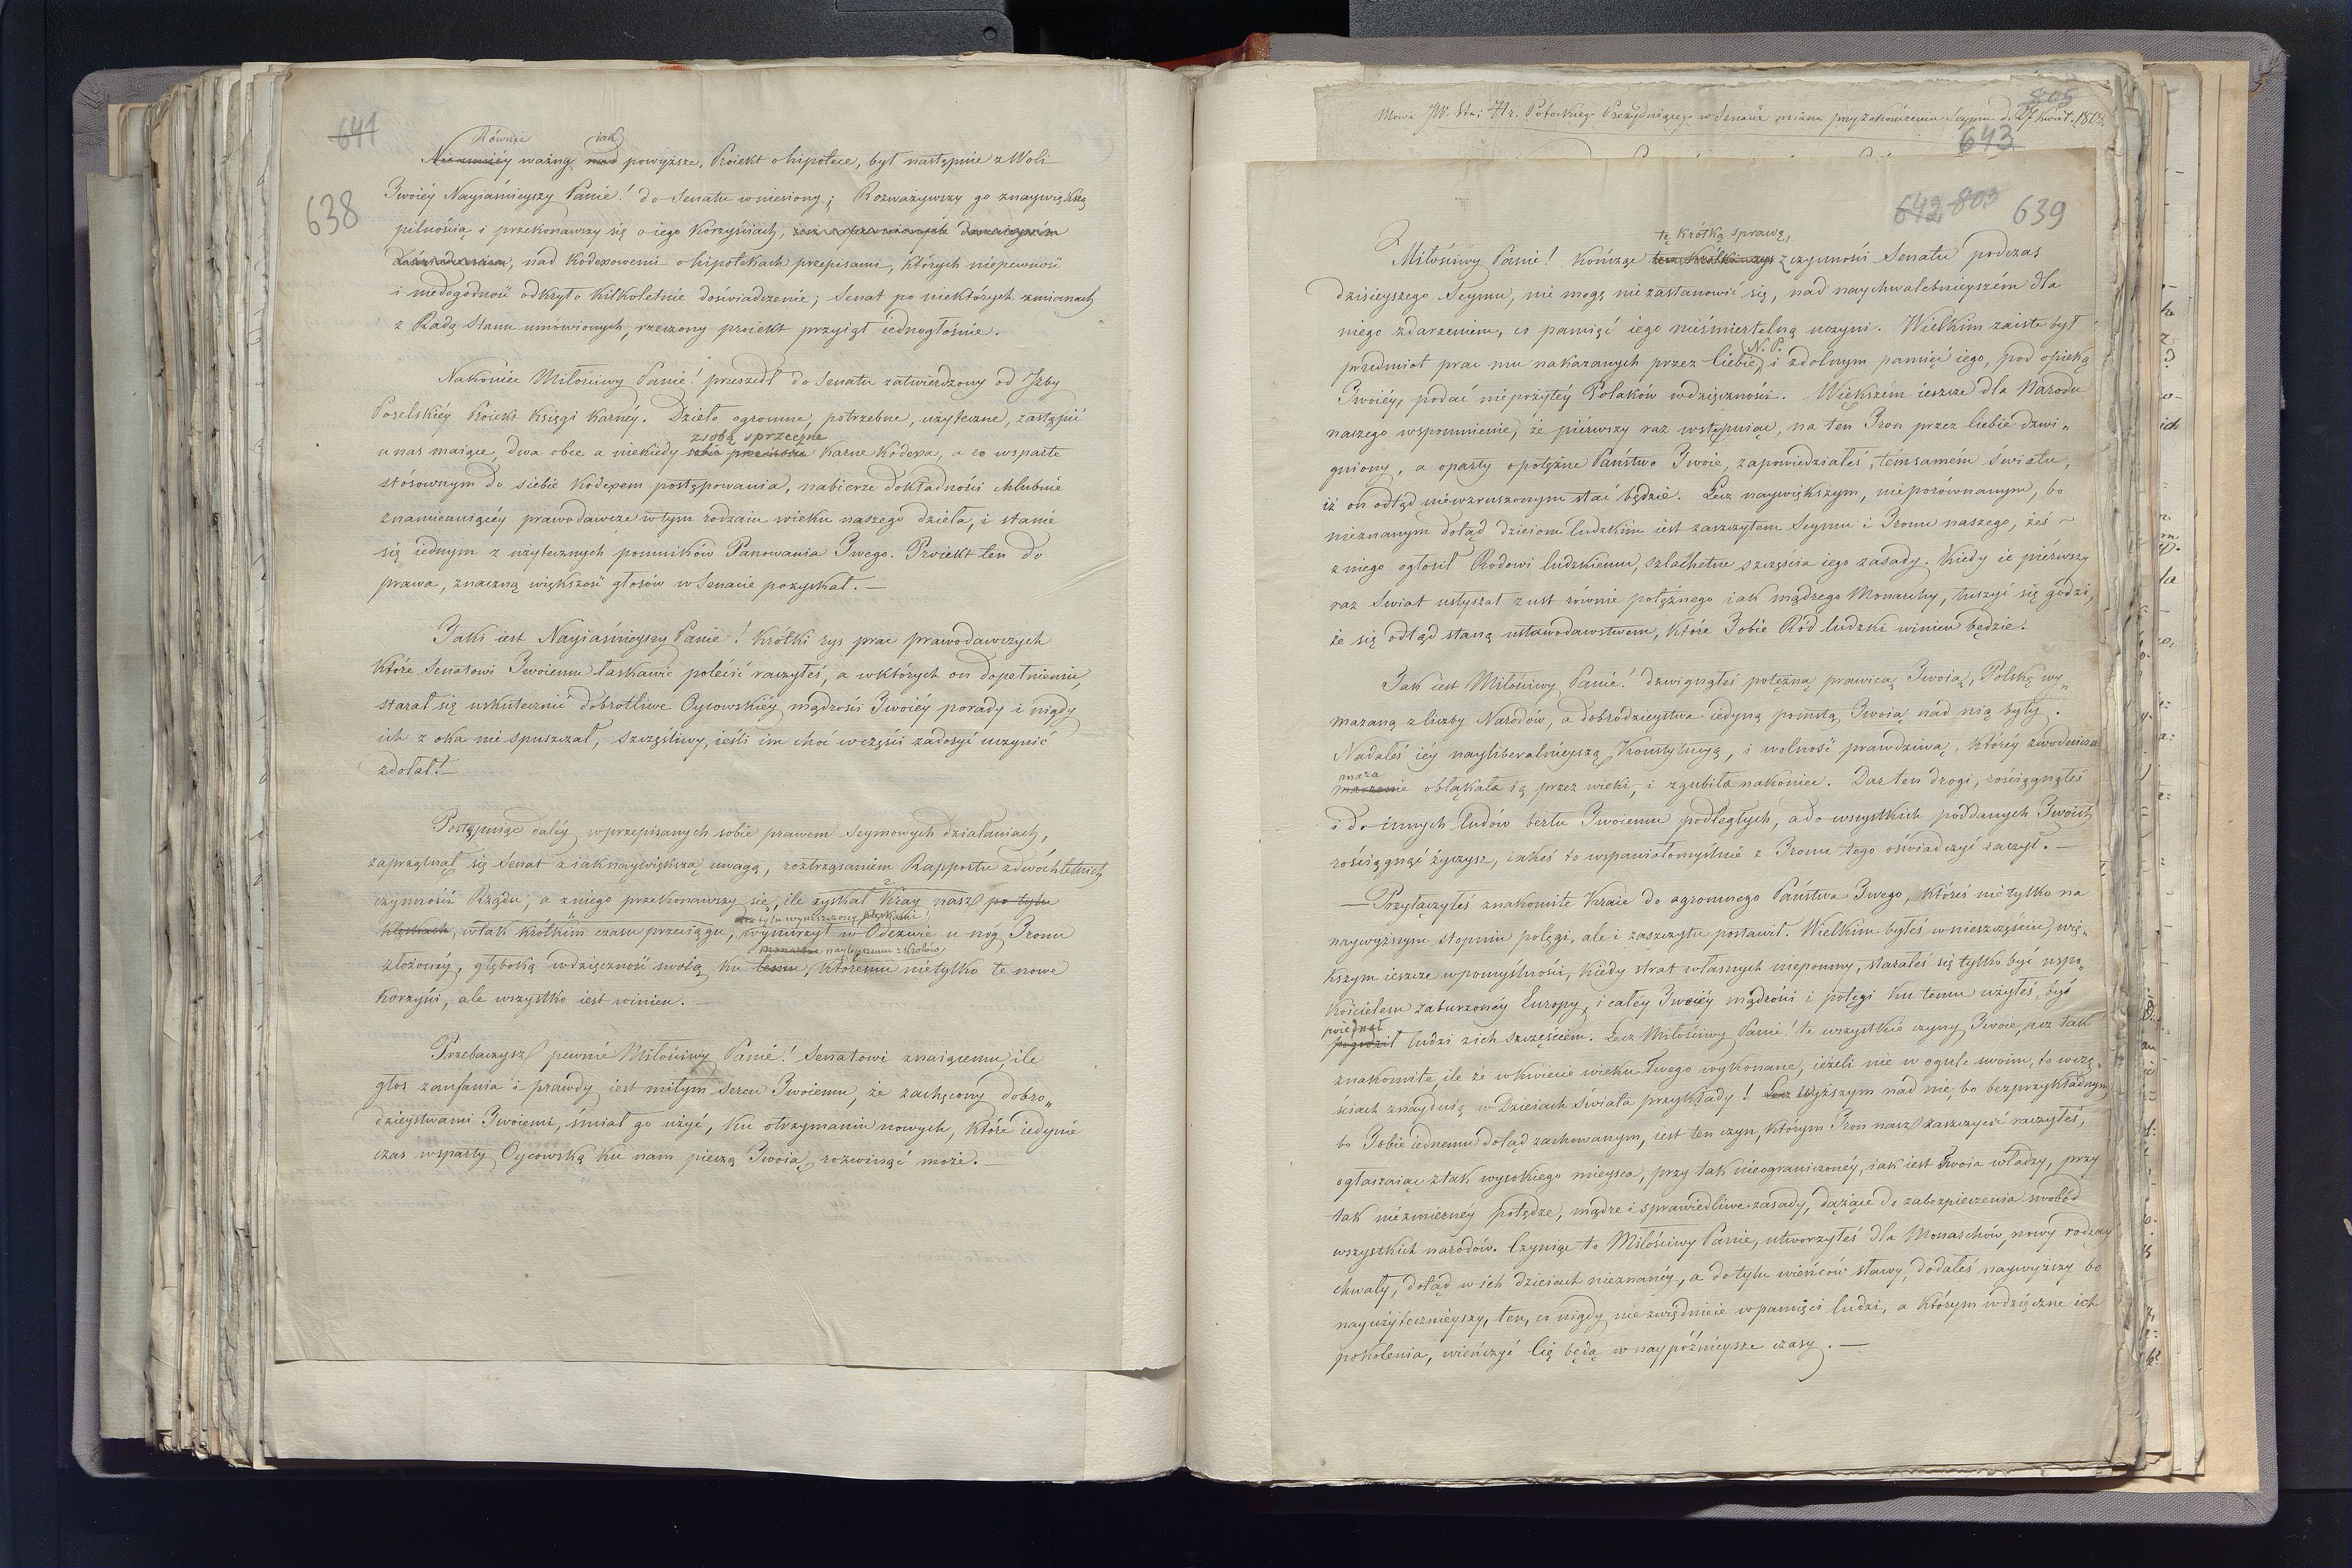 641
638
Równie iak
Niemniéy ważny nad powyższe, Proiekt o hipotece, był następnie z Woli
Twoiéy Nayiaśnieyszy Panie! do Senatu wniesiony; Rozważywszy go znaywiększą
pilnością i przekonawszy się o iego korzyściach,
nad Kodexowemi o hipotekach przepisami, których niepewność
i niedogodność odkryło kilkoletnie doświadczenie; Senat po niektórych zmianach
z Radą Stanu umówionych, rzeczony proiekt przyiął iednogłośnie.
Nakoniec Miłościwy Panie! przeszedł do Senatu zatwierdzony od Izby
Poselskiéy Proiekt Księgi Karnéy. Dzieło ogromne, potrzebne, użyteczne, zastąpić
zsobą sprzeczne
u nas maiące, dwa obce a niekiedy sobie przeciwne karne Kodexa, a co wsparte
stósownym do siebie Kodexem postępowania, nabierze dokładności chlubnie
znamionuiącéy prawodawcze wtym rodzaiu wieku naszego dzieła, i stanie
się iednym z użytecznych pomników Panowania Twego. Proiekt ten do
prawa, znaczną większość głosów w Senacie pozyskał. —
Taki iest Nayiaśnieyszy Panie! krótki rys prac prawodawczych
które Senatowi Twoiemu łaskawie polécić raczyłeś, a wktórych on dopełnieniu,
starał się uskutecznić dobrotliwe Oycowskiéy mądrości Twoiéy porady i nigdy
ich z oka nie spuszczał, szczęśliwy, ieśli im choć wczęści zadosyć uczynić
zdołał! —
Postępuiąc daléy wprzepisanych sobie prawem Seymowych działaniach,
zaprzątnął się Senat z iaknaywiększą uwagą, roztrząsaniem Rapportu zdwóchletnich
czynności Rządu, a zniego przekonawszy się, ile zyskał Kray nasz po tylu
tylu wyniszczony klęskami
klęskach, wtak krótkim czasu przeciągu, wynurzył w Odezwie u nóg Tronu
Monarsze naylepszemu zKrólów
złożonéy, głęboką wdzięczność swoią ku temu, któremu nietylko te nowe
korzyści, ale wszystko iest winien. —
Przebaczysz pewnie Miłościwy Panie! Senatowi znaiącemu, ile
głos zaufania i prawdy iest miłym Sercu Twoiemu, że zachęcony dobro„
dzieystwami Twoiemi, śmiał go użyć, ku otrzymaniu nowych, które iedynie
czas wsparty Oycowską ku nam pieczą Twoią, rozwinąć może. —
805
Mowa JW. Sta: Hr. Potockiego Prezyduiącego w Senacie miana przy zakończeniu Seymu d. 27 Kwiet. 1818.
643
642 803 639
tę krótką sprawę,
Miłościwy Panie! Kończąc ten krótki rys z czynności Senatu podczas
dzisieyszego Seymu, nie mogę nie zastanowić się, nad naychwalebnieyszém dla
niego zdarzeniem, co pamięć iego nieśmiertelną uczyni. Wielkim zaiste był
N. P.
przedmiot prac mu nakazanych przez Ciebie, i zdolnym pamięć iego, pod opieką
Twoiéy, podać niepożytéy Polaków wdzięczności. Większém ieszcze dla Narodu
naszego wspomnienie, że piérwszy raz wstępuiąc, na ten Tron przez Ciebie dzwi„
gniony, a oparty o potężne Państwo Twoie, zapowiedziałeś, témsamém światu,
iż on odtąd niewzruszonym stać będzie. Lecz naywiększym, nieporównanym, bo
nieznanym dotąd dzieiom ludzkim iest zaszczytem Seymu i Tronu naszego, żeś
z niego ogłosił Rodowi ludzkiemu, szlachetne szczęścia iego zasady. Kiedy ie piérwszy
raz Swiat usłyszał z ust równie potężnego iak mądrego Monarchy, tuszyć się godzi,
że się odtąd staną ustawodawstwem, które Tobie Ród ludzki winien będzie.
Tak iest Miłościwy Panie! dzwignąłeś potężną prawicą Twoią, Polskę wy„
mazaną z liczby Narodów, a dobrodzieystwa iedyną pomstą Twoią nad nią były.
Nadałeś iéy nayliberalnieyszą Konstytucyą, i wolność prawdziwą, któréy zwodnicza
mara
marzenie obłąkała ią przez wieki, i zgubiła nakoniec. Dar ten drogi, rościągnąłeś
i do innych ludów berłu Twoiemu podległych, a do wszystkich poddanych Twoich
rościągnąć życzysz, iakeś to wspaniałomyślnie z Tronu tego oświadczyć raczył. —
— Przyłączyłeś znakomite Kraie do ogromnego Państwa Twego, któreś nietylko na
naywyższym stopniu potęgi, ale i zaszczytu postawił. Wielkim byłeś wnieszczęściu, wię„
kszym ieszcze wpomyślności, kiedy strat własnych niepomny, starałeś się tylko być uspo„
koicielem zaburzonéy Europy, i całéy Twoiéy mądrości i potęgi ku temu użyłeś, byś
poiednał
pogodził ludzi zich szczęściem. Lecz Miłościwy Panie! te wszystkie czyny Twoie, acz tak
znakomite, ile że wkwiecie wieku Twego wykonane, ieżeli nie w ogule swoim, to wczę„
ściach znaydują w Dzieiach świata przykłady! Lecz Wyższym nad nie, bo bezprzykładnym,
bo Tobie iednemu dotąd zachowanym, iest ten czyn, którym Tron nasz zaszczycić raczyłeś,
ogłaszaiąc z tak wysokiego mieysca, przy tak nieograniczonéy, iak iest Twoia władzy, przy
tak niezmiernéy potędze, mądre i sprawiedliwe zasady, dążące do zabezpieczenia swobód
wszystkich narodów. Czyniąc to Miłościwy Panie, utworzyłeś dla Monarchów, nowy rodzay
chwały, dotąd w ich dzieiach nieznanéy, a do tylu wieńców sławy, dodałeś naywyższy bo
nayużytecznieyszy, ten, co nigdy nie zwiędnieie w pamięci ludzi, a którym wdzięczne ich
pokolenia, wieńczyć Cię będą w naypóźnieysze czasy. —